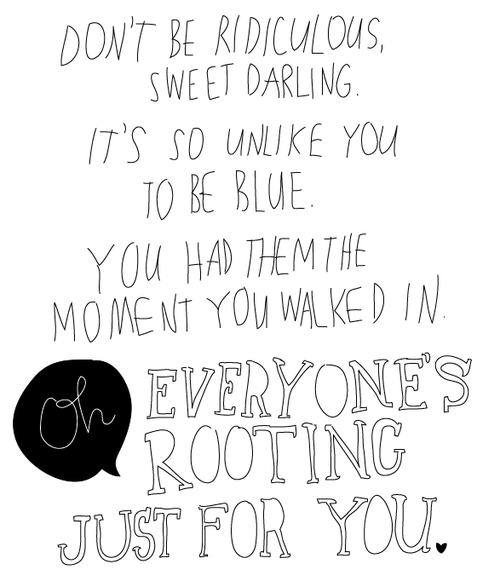 DON'T BE RIDICULOUS,
SWEET DARLING.
IT'S SO UNLIKE YOU
TO BE BLUE.
YOU HAD THEM THE
MOMENT YOU WALKED IN.
Oh EVERYONE'S
ROOTING
JUST FOR YOU.